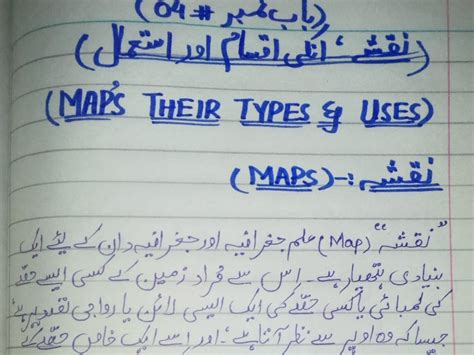 (باب نمبر #04)
(نقشے، انکی اقسام اور استعمال)
(MAP'S THEIR TYPES & USES)
نقشہ :- (MAPS)
"نقشہ" (Map) علم جغرافیہ اور جغرافیہ دان کے لیئے ایک
بنیادی ہتھیار ہے۔ اس سے مُراد زمین کے کسی ایسے حصّے
کی لمبائی یا کسی حصّے کی ایک ایسی لائن یا رواجی تصویر ہے،
جیسا کہ وہ اوپر سے نظر آتا ہے، اور اسے ایک خاص حصّے کے